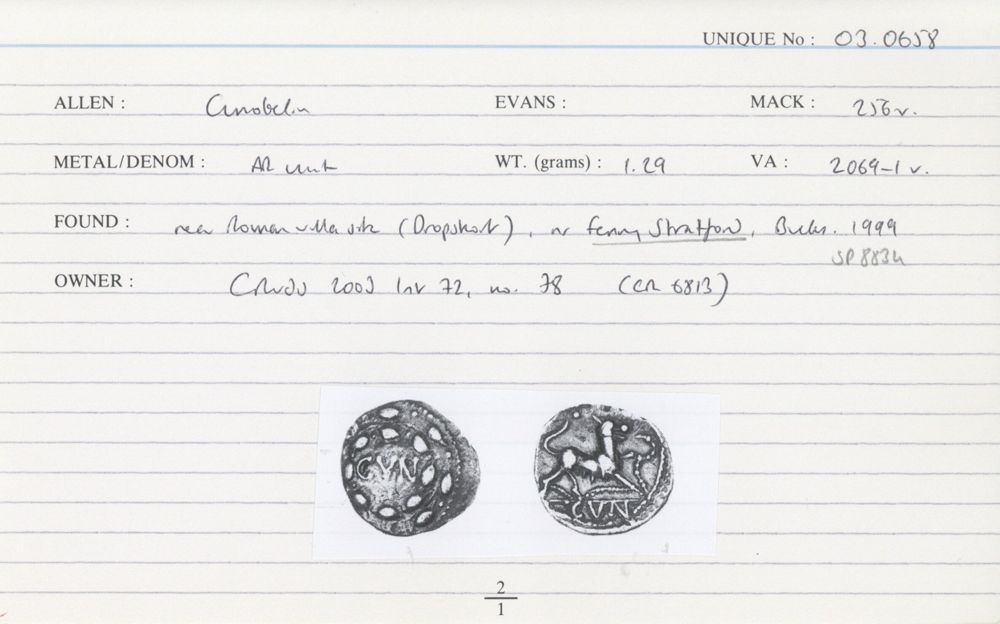 UNIQUE No : 03.0658
ALLEN : Cunobelin EVANS : MACK : 256 v.
METAL/DENOM : AR unit WT. (grams) : 1.29 VA : 2069-1 v.
FOUND : near Roman villa site (Dropshort), nr Fenny Stratford, Bucks. 1999
SP 8834
OWNER : 2003 list 72, no. 78 (CR 6813)
CVN
CVN
2
1